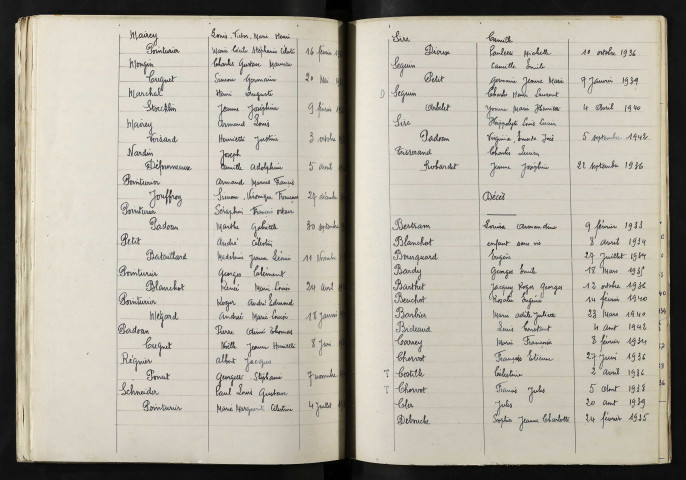 Mairey Louis Victor Marie Henri
Pointurier Marie Cécile Stéphanie 16 février
Mongin Charles Gustave Maurice
Cuguet Simone Germaine 20 Mai
Marchal Henri Auguste
Stocklin Jeanne Joséphine 9 février
Mairey Armand Louis
Voisard Henriette Justine 3 octobre
Nardin Joseph
Camille Adolphine 5 avril
Pointurier Armand Marcus Francis
Jouffroy Simone Véronique Françoise 27 décembre
Pointurier Séraphin Francis
Badoan Marthe 30 septembre
Petit André Célestin
Bataillard Madeleine Jeanne 11
Pointurier Georges Clément
Blanchot Marie Louise 24 avril
Pointurier Roger André Edmond
Métzard Andrée Marie Louise 18 Janvier
Badoan Pierre Thomas
Cuguet Noëlle Jeanne Henriette 8 Juin
Régnier Albert Jacques
Georgette Stéphanie 7 novembre
Schneider Paul Louis Gustave
Pointurier Marie Marguerite Célestine 4 Juillet
Sire Camille
Paulette Michelle 10 octobre 1936
Seguin Camille Emile
Petit Germaine Jeanne Marie 9 Janvier 1939
D Seguin Charles Henri Laurent
Yvonne Marie 4 Avril 1940
Sire Hippolyte Louis
Badoan Virginia 5 septembre 1942
Tisserand Charles Lucien
Jeanne Joséphine 22 septembre 1936
Décès
Bertram Louise Amandine 9 février 1933
Blanchot enfant sans vie 8 avril 1934
Bourquard Eugène 27 Juillet 1934
Bardy Georges Emile 18 Mars 1935
Barthet Jacques Roger Georges 12 octobre 1936
Beuchot Rosalie Eugénie 14 février 1940
Barbier Marie Juliette 23 Mars 1940
Bideaud Louis Constant 4 août 1942
Carrey Marie Françoise 8 février 1934
Chorvot François Etienne 27 Juin 1936
T Célestine 2 avril 1936
T Chorvot Francis Jules 5 Août 1938
Cler Jules 20 août 1939
Debouche Sophie Jeanne Charlotte 24 février 1935